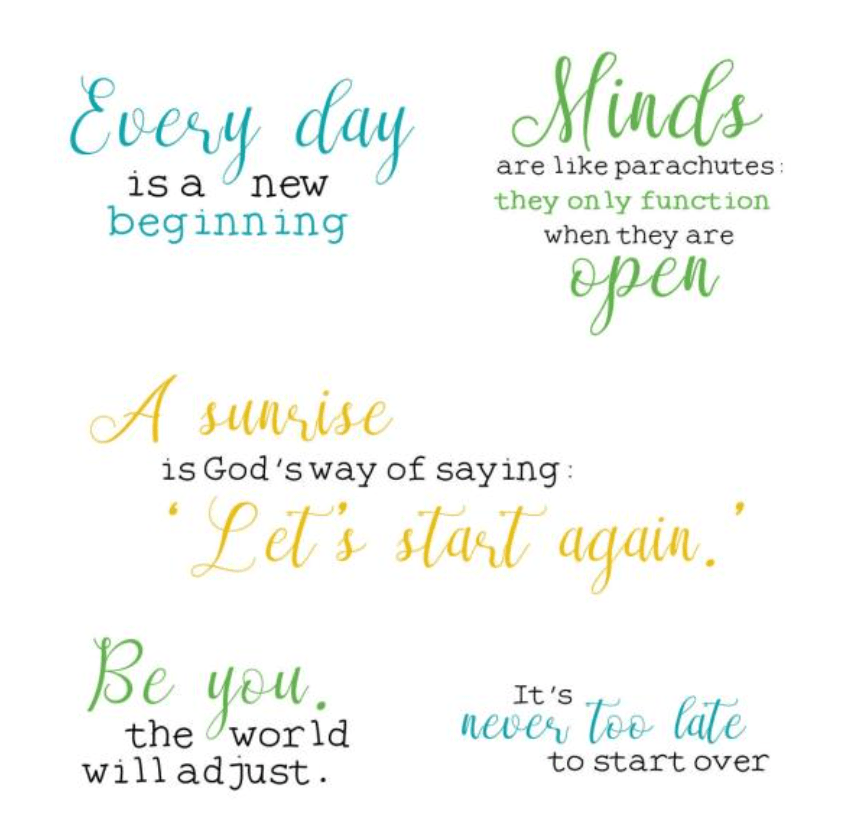 Every day
is a new
beginning
Minds
are like parachutes:
they only function
when they are
open
A sunrise
is God's way of saying:
'Let's start again.'
Be you.
the world
will adjust.
It's
never too late
to start over